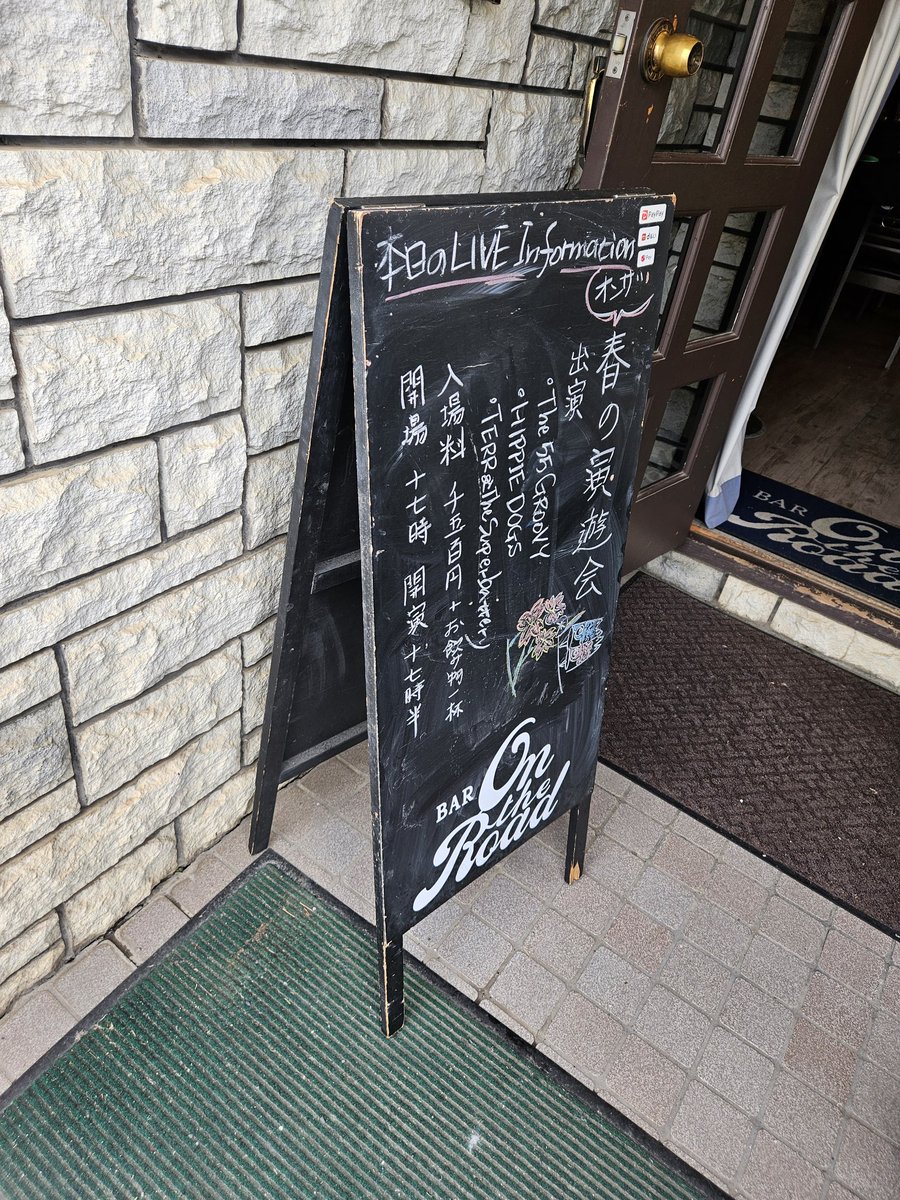 本日のLIVE Information
PayPay
d払い
Pay
オンザ
春の演遊会
出演
・The 55 GROOVY
・HIPPIE DOGS
・TERRA(The Superbinner)
入場料 千五百円+お飲み物一杯
開場 十七時 開演 十七時半
BAR On the Road
BAR On the Road